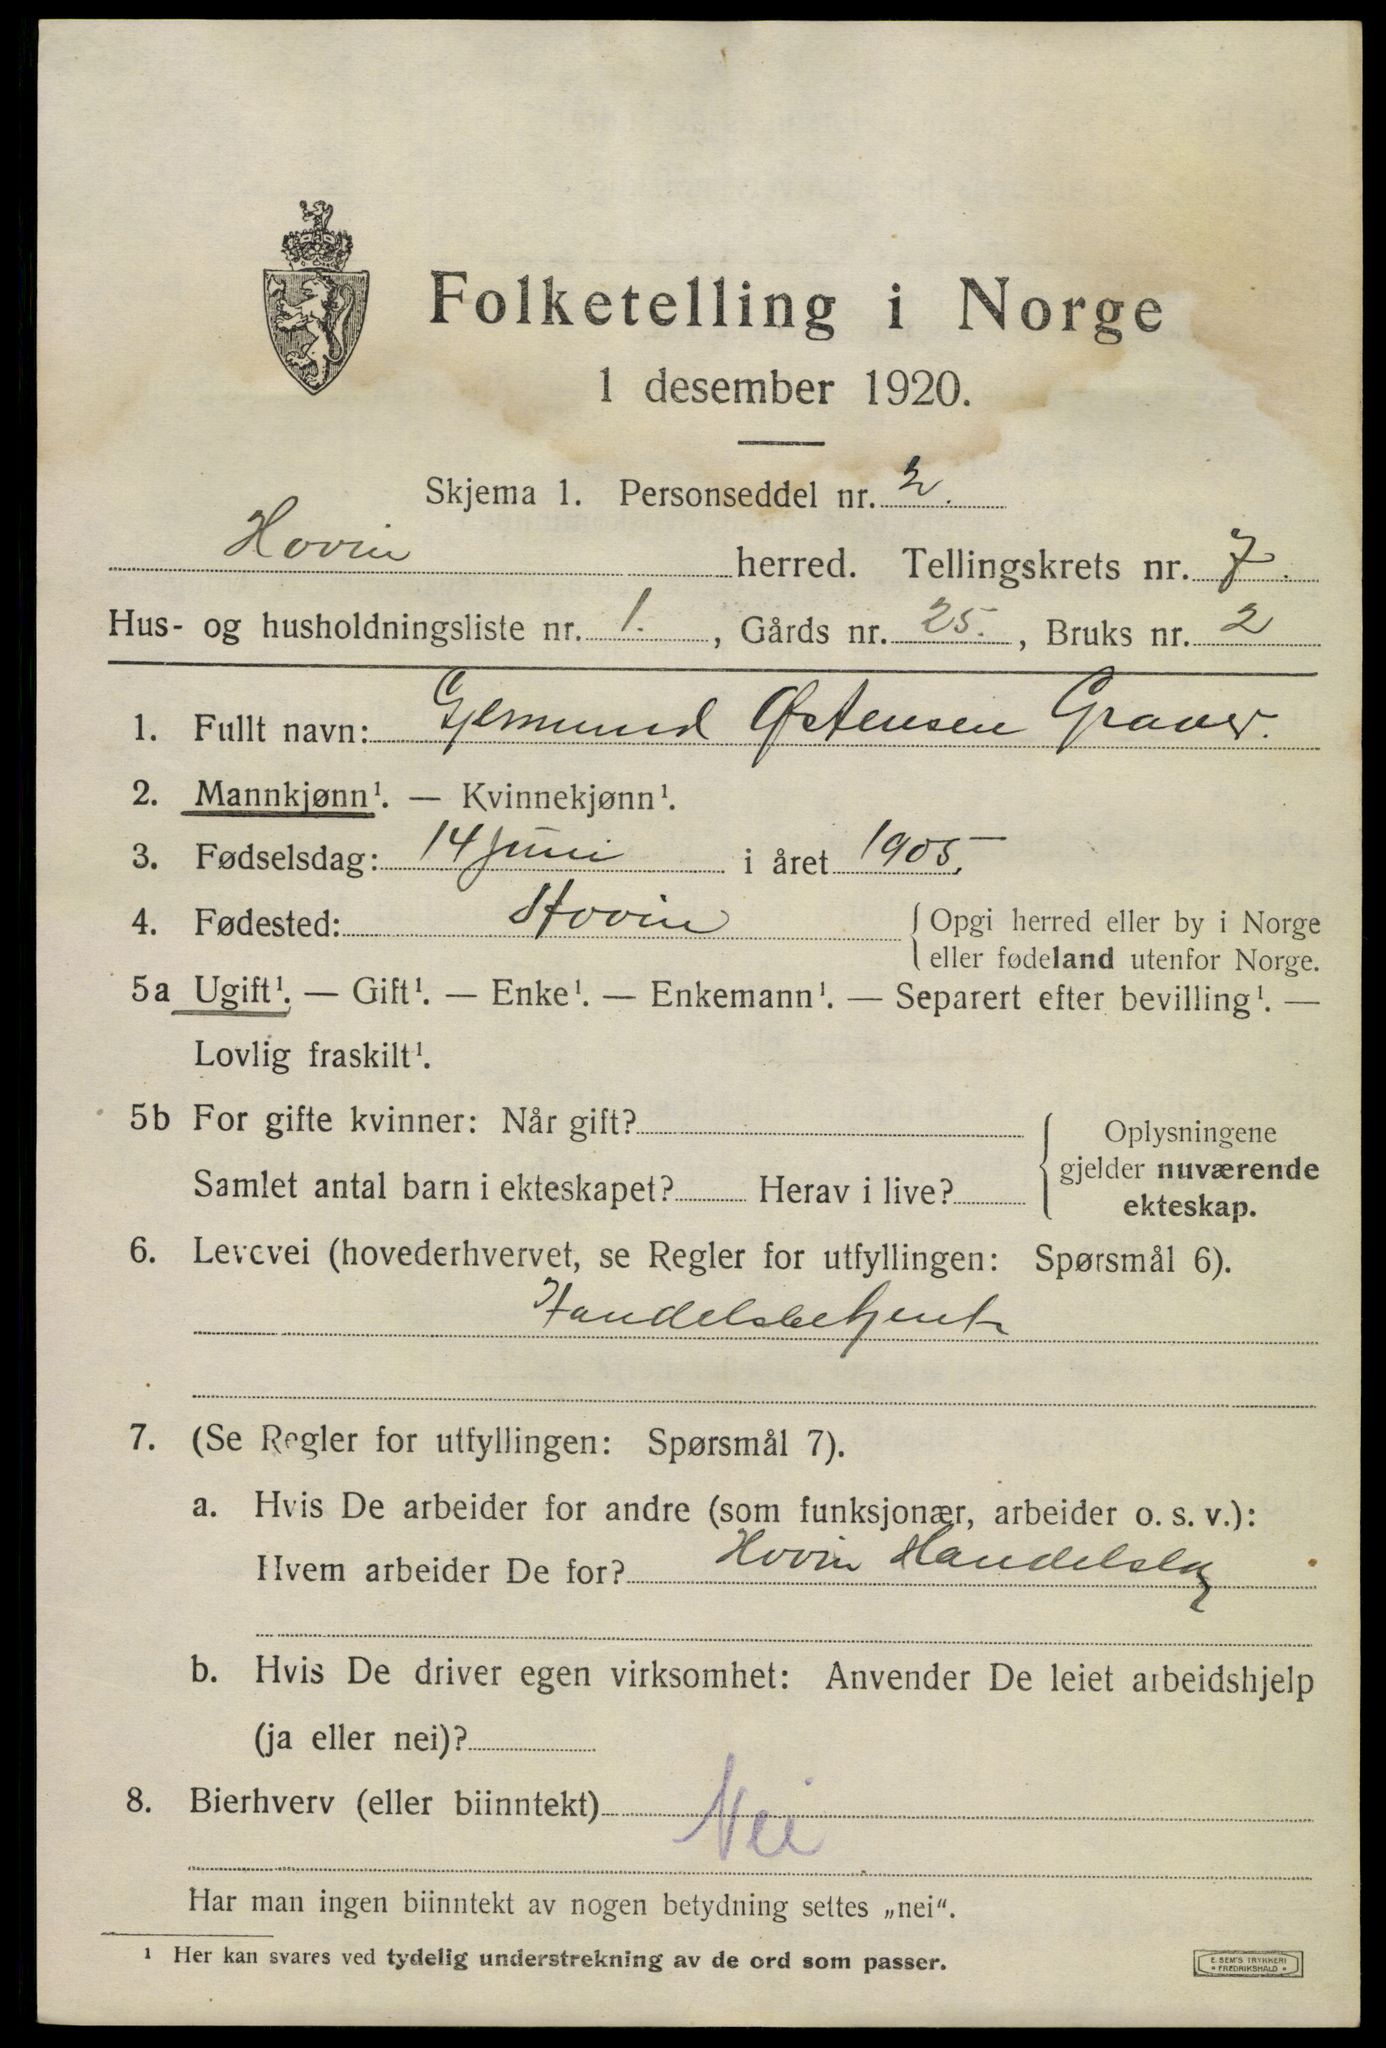 Folketelling i Norge
1 desember 1920.
Skjema 1. Personseddel nr. 2.
Hovin herred. Tellingskrets nr. 7.
Hus- og husholdningsliste nr. 1., Gårds nr. 25., Bruks nr. 2
1. Fullt navn: Gjermund Østensen Graver.
2. Mannkjønn¹. — Kvinnekjønn¹.
3. Fødselsdag: 14 juni i året 1905.
4. Fødested: Hovin { Opgi herred eller by i Norge
eller fødeland utenfor Norge.
5a Ugift¹. — Gift¹. — Enke¹. — Enkemann¹. — Separert efter bevilling¹. —
Lovlig fraskilt¹.
5b For gifte kvinner: Når gift? { Oplysningene
gjelder nuværende
Samlet antal barn i ekteskapet? Herav i live?
ekteskap.
6. Levevei (hovederhvervet, se Regler for utfyllingen: Spørsmål 6).
Handelsbetjent
7. (Se Regler for utfyllingen: Spørsmål 7).
a. Hvis De arbeider for andre (som funksjonær, arbeider o. s. v.):
Hvem arbeider De for? Hovin Handelslag
b. Hvis De driver egen virksomhet: Anvender De leiet arbeidshjelp
(ja eller nei)?
8. Bierhverv (eller biinntekt) Nei
Har man ingen biinntekt av nogen betydning settes „nei“.
¹ Her kan svares ved tydelig understrekning av de ord som passer.
E. SEM'S TRYKKERI
• FREDRIKSHALD •